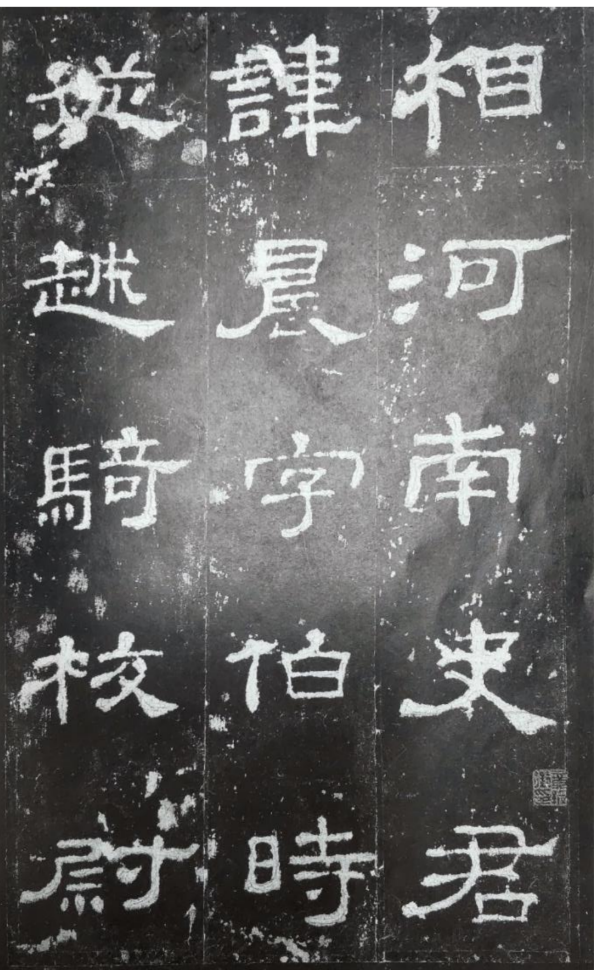 相河南史君
諱晨字伯時
從越騎校尉